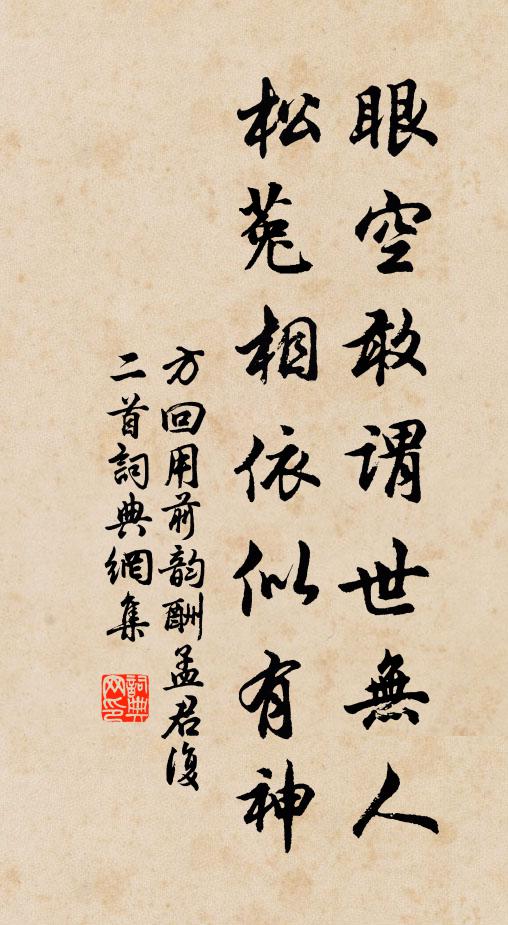 眼空敢謂世無人
松菟相依似有神
方回用前韵酬孟君復
二首詞典網集
詞典
网印